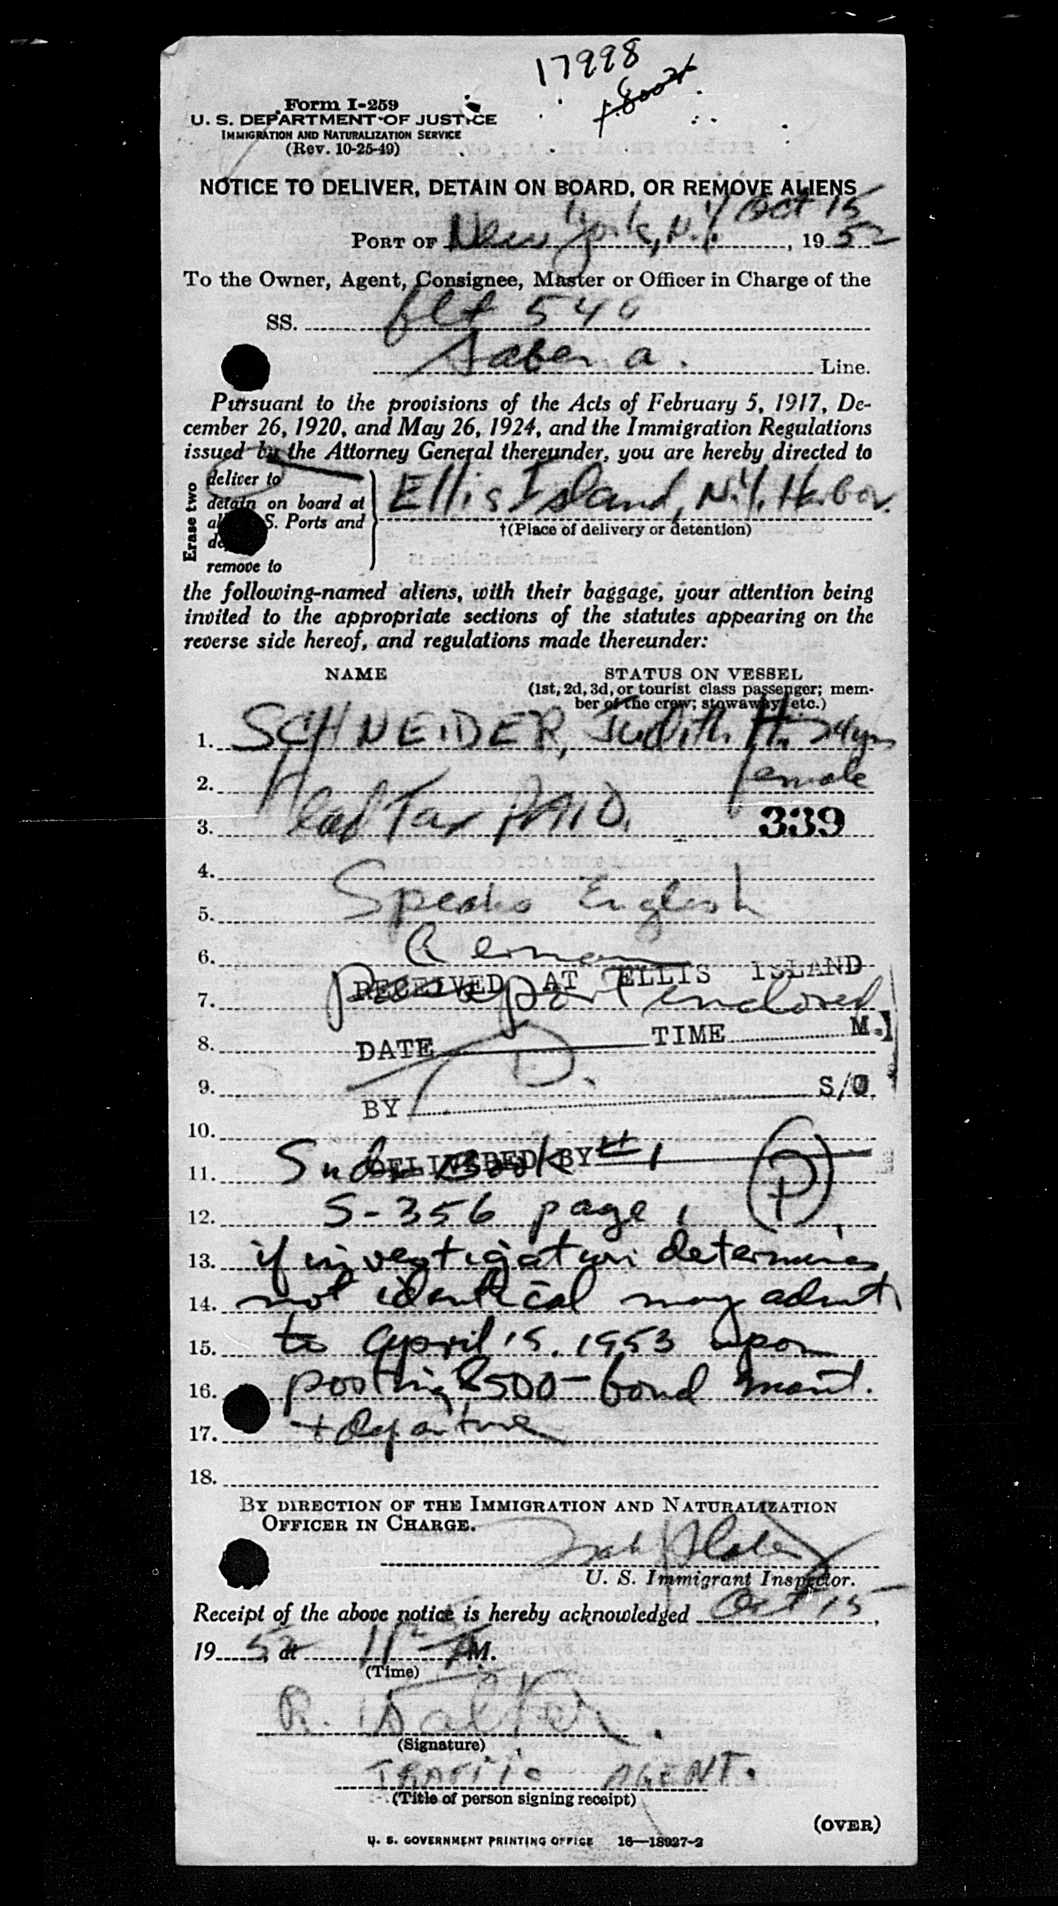 17998
Form I-259
U. S. DEPARTMENT OF JUSTICE
IMMIGRATION AND NATURALIZATION SERVICE
(Rev. 10-25-49)
NOTICE TO DELIVER, DETAIN ON BOARD, OR REMOVE ALIENS
Oct 15
PORT OF New York, N.Y., 1952
To the Owner, Agent, Consignee, Master or Officer in Charge of the
SS. flt 546
Sabena. Line.
Pursuant to the provisions of the Acts of February 5, 1917, De-
cember 26, 1920, and May 26, 1924, and the Immigration Regulations
issued by the Attorney General thereunder, you are hereby directed to
Erase two
deliver to
detain on board at
S. Ports and
remove to
Ellis Island, N.Y. Harbor.
†(Place of delivery or detention)
the following-named aliens, with their baggage, your attention being
invited to the appropriate sections of the statutes appearing on the
reverse side hereof, and regulations made thereunder:
NAME STATUS ON VESSEL
(1st, 2d, 3d, or tourist class passenger; mem-
ber of the crew; stowaway, etc.)
1. SCHNEIDER, Judith H. 24yrs
2. female
3. Head Tax PAID. 339
4.
5. Speaks English
6. German
RECEIVED AT ELLIS ISLAND
7. passport enclosed
8. DATE TIME M.
9. BY S/O.
10.
11. DELIVERED BY # 1
12. S-356 page 1
13. if investigation determines
14. not identical may admit
15. to April 15, 1953 upon
16. posting $500- bond maint.
17. + departure
18.
BY DIRECTION OF THE IMMIGRATION AND NATURALIZATION
OFFICER IN CHARGE.
U. S. Immigrant Inspector.
Receipt of the above notice is hereby acknowledged Oct 15,
1952 at AM.
(Time)
R.
(Signature)
TRAFFIC AGENT.
(Title of person signing receipt)
(OVER)
U. S. GOVERNMENT PRINTING OFFICE 16—18927-2